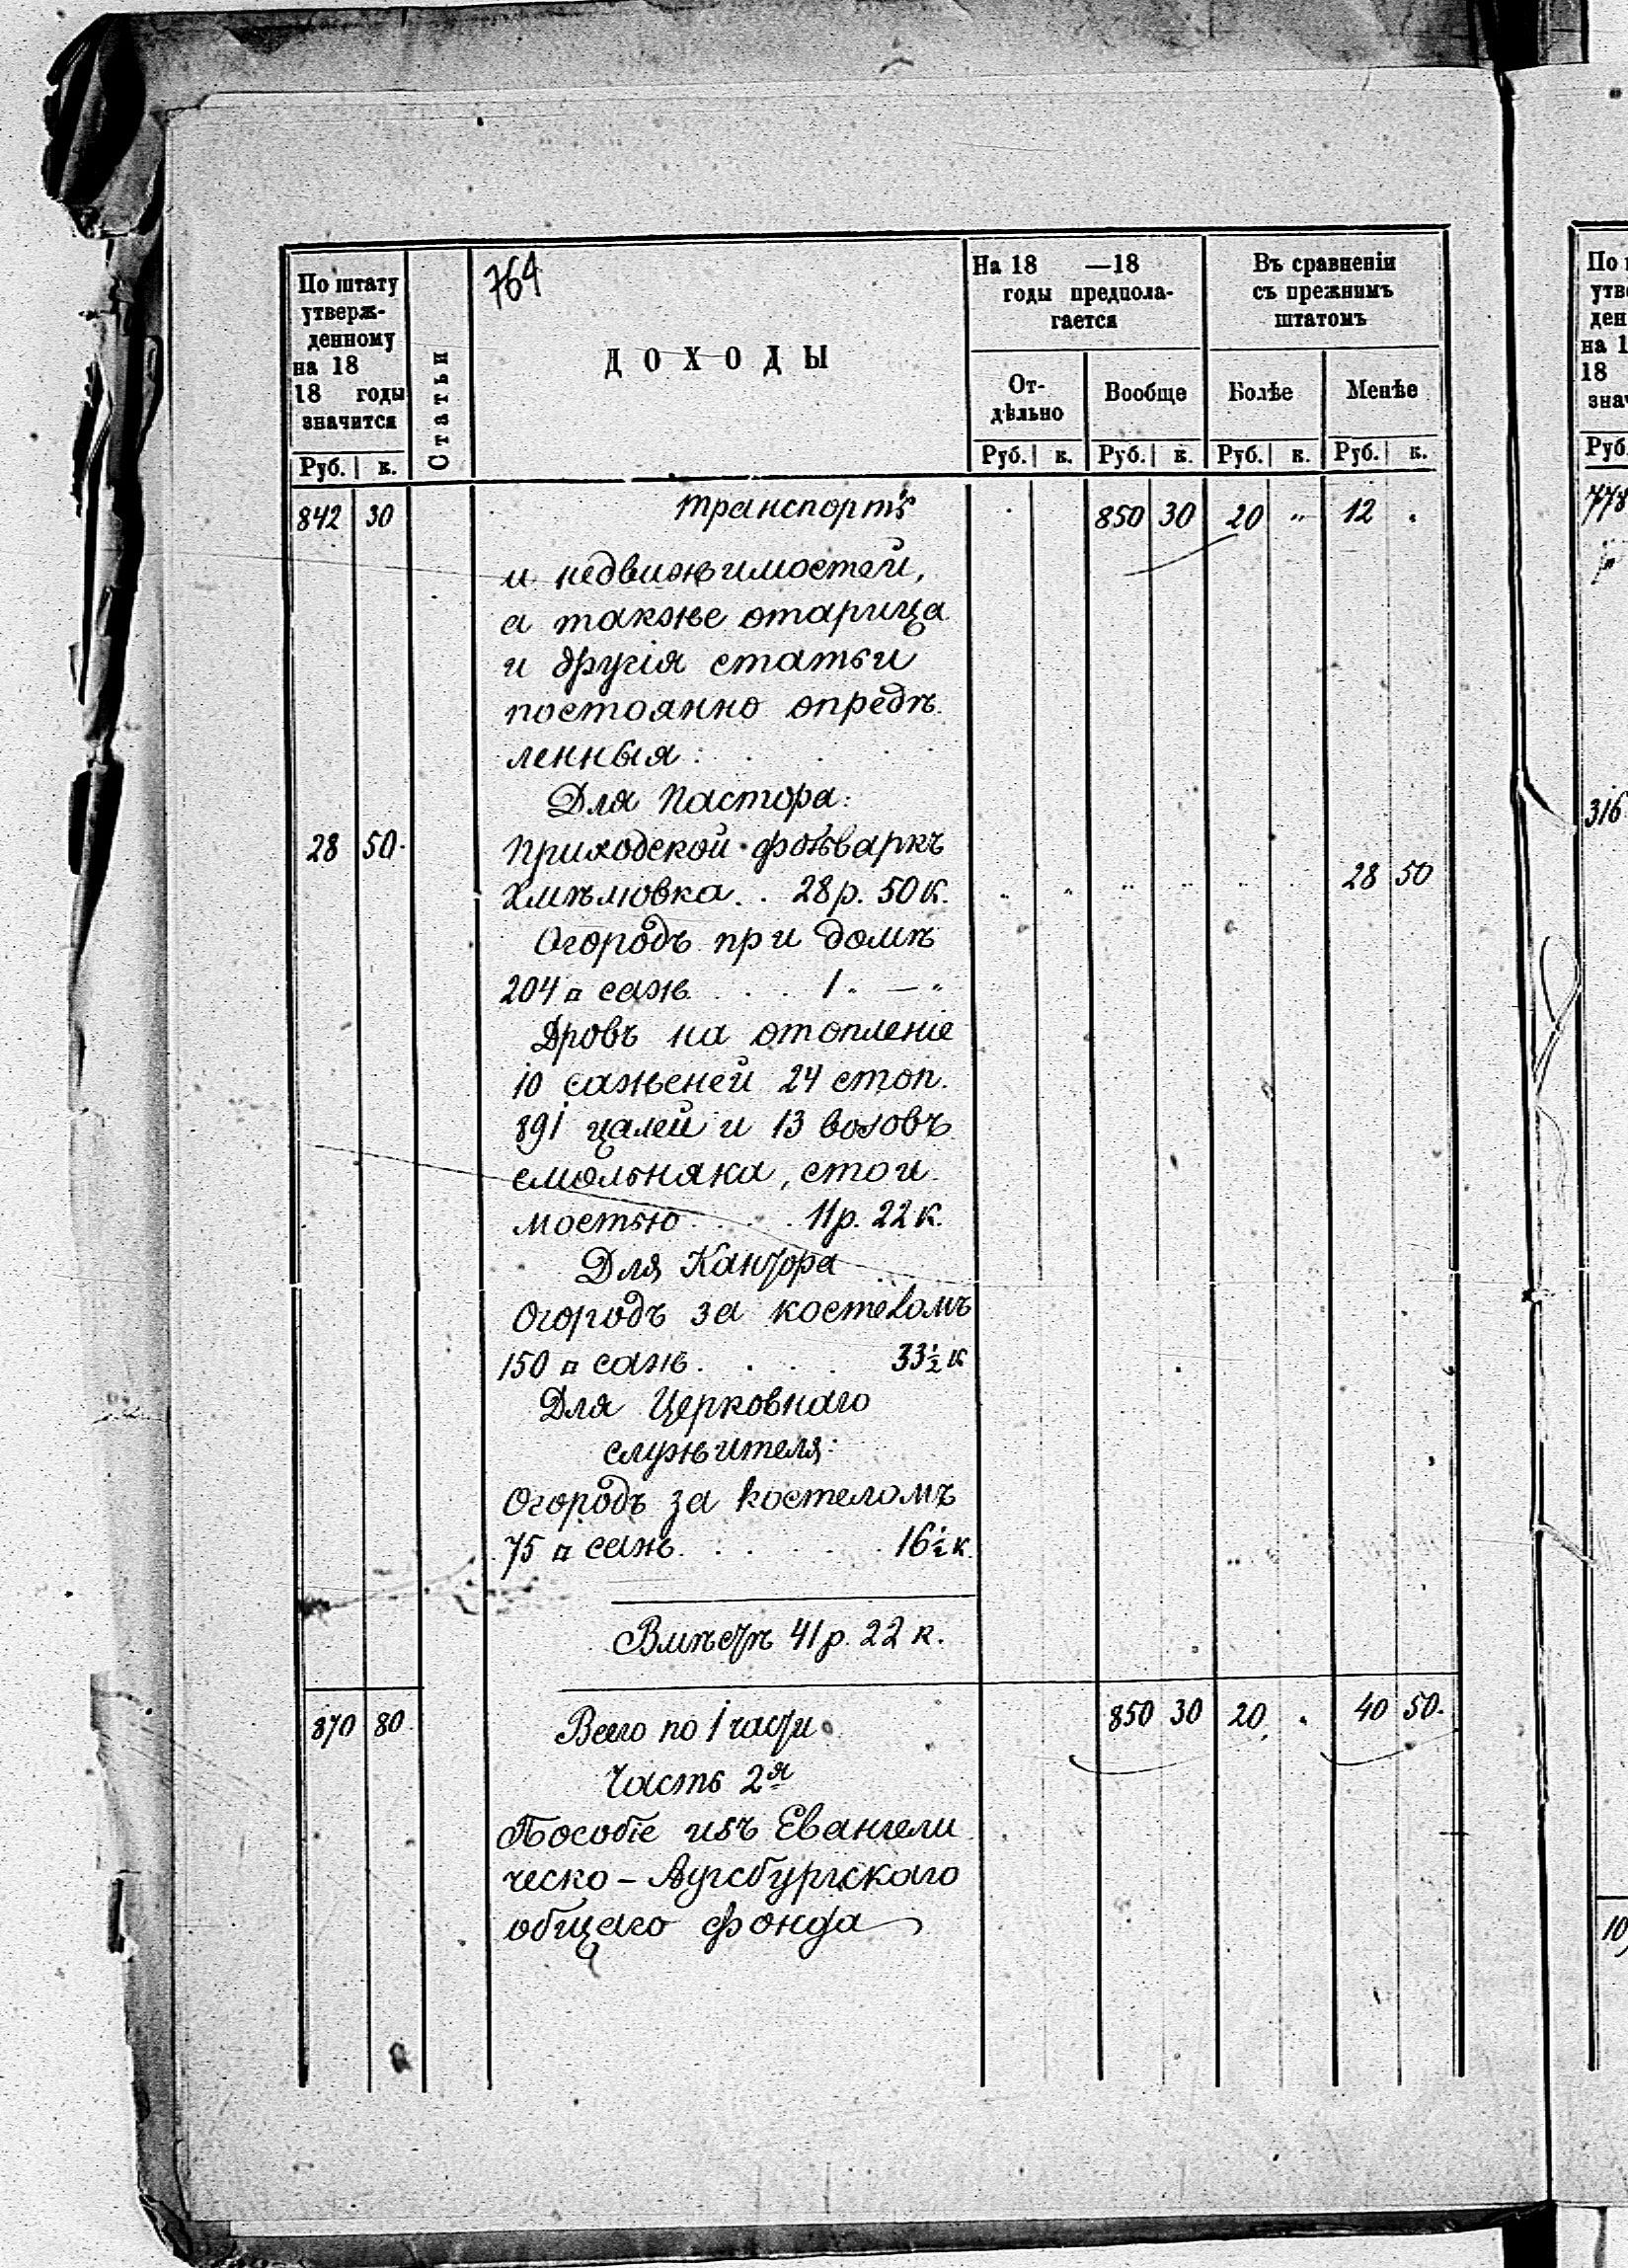 764
По штату
утверж-
денному
на 18
18 годы
значится
Руб. к.
Статьи
ДОХОДЫ
На 18 —18
годы предпола-
гается
От-
дѣльно
Руб. к.
Вообще
Руб. к.
Въ сравненіи
съ прежнимъ
штатомъ
Болѣе
Руб. к.
Менѣе
Руб. к.
842 30 Транспортъ 850 30 20 " 12 .
и недвижимостей,
а также отарица
и другія статьи
постоянно опредѣ
ленныя:
Для Пастора:
28 50. Приходской фольваркъ
Хмѣлювка . . 28 р. 50 к. 28 50
Огородъ при домѣ
204 □ саж. . . . 1 " — "
Дровъ на отопленіе
10 саженей 24 стоп.
891 цалей и 13 возовъ
смольняка, стои
мостью . . . . 11 р. 22 к.
Для Кантора
Огородъ за костеломъ
150 □ саж. . . . . 33 ½ к
Для Церковнаго
служителя:
Огородъ за костеломъ
75 □ саж. . . . . . 16 ½ к.
Вмѣстѣ 41 р. 22 к.
870 80. Всего по 1 части 850 30 20 . 40 50.
Часть 2я
Пособіе изъ Евангели
ческо-Аугсбургскаго
общаго фонда
По
утв
ден
на 1
18
зна
Руб.
778
316
10